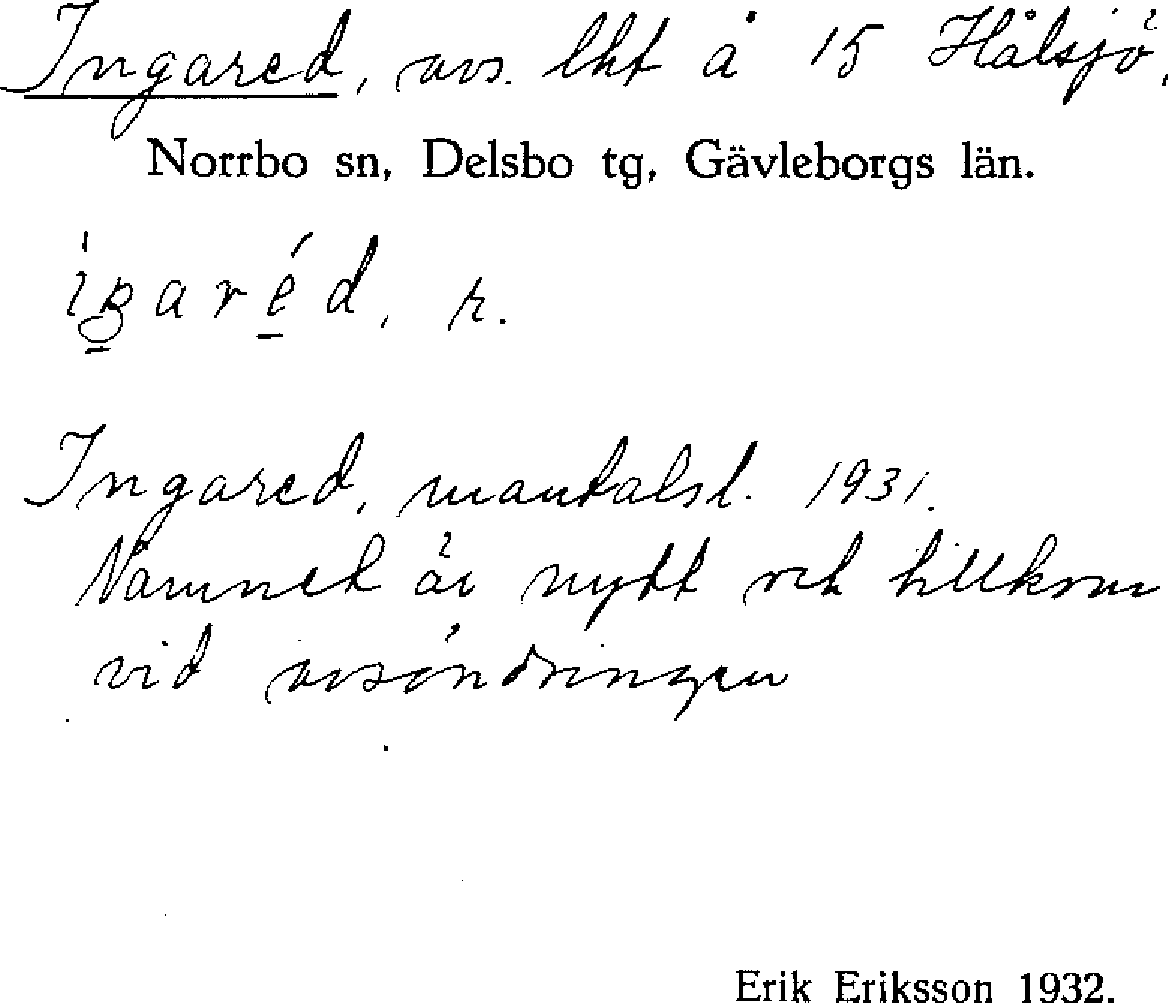 Ingared, avs. lht å 15 Hålsjö,
Norrbo sn, Delsbo tg, Gävleborgs län.
Ingared, mantalsl. 1931.
Namnet är nytt och tillkom
vid avsöndringen
Erik Eriksson 1932.